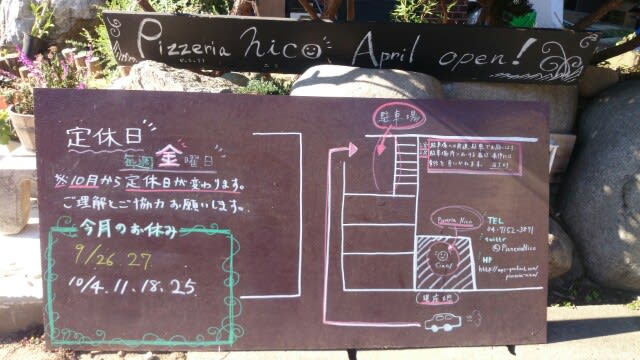 Pizzeria nico April open!
定休日
毎週 金 曜日
※10月から定休日が変わります。
ご理解とご協力お願いします。
今月のお休み
9/26.27
10/4.11.18.25
駐車場
Pizzeria Nico
Ciao!
現在地
TEL
04-7152-3871
twitter
@PizzeriaNico
HP